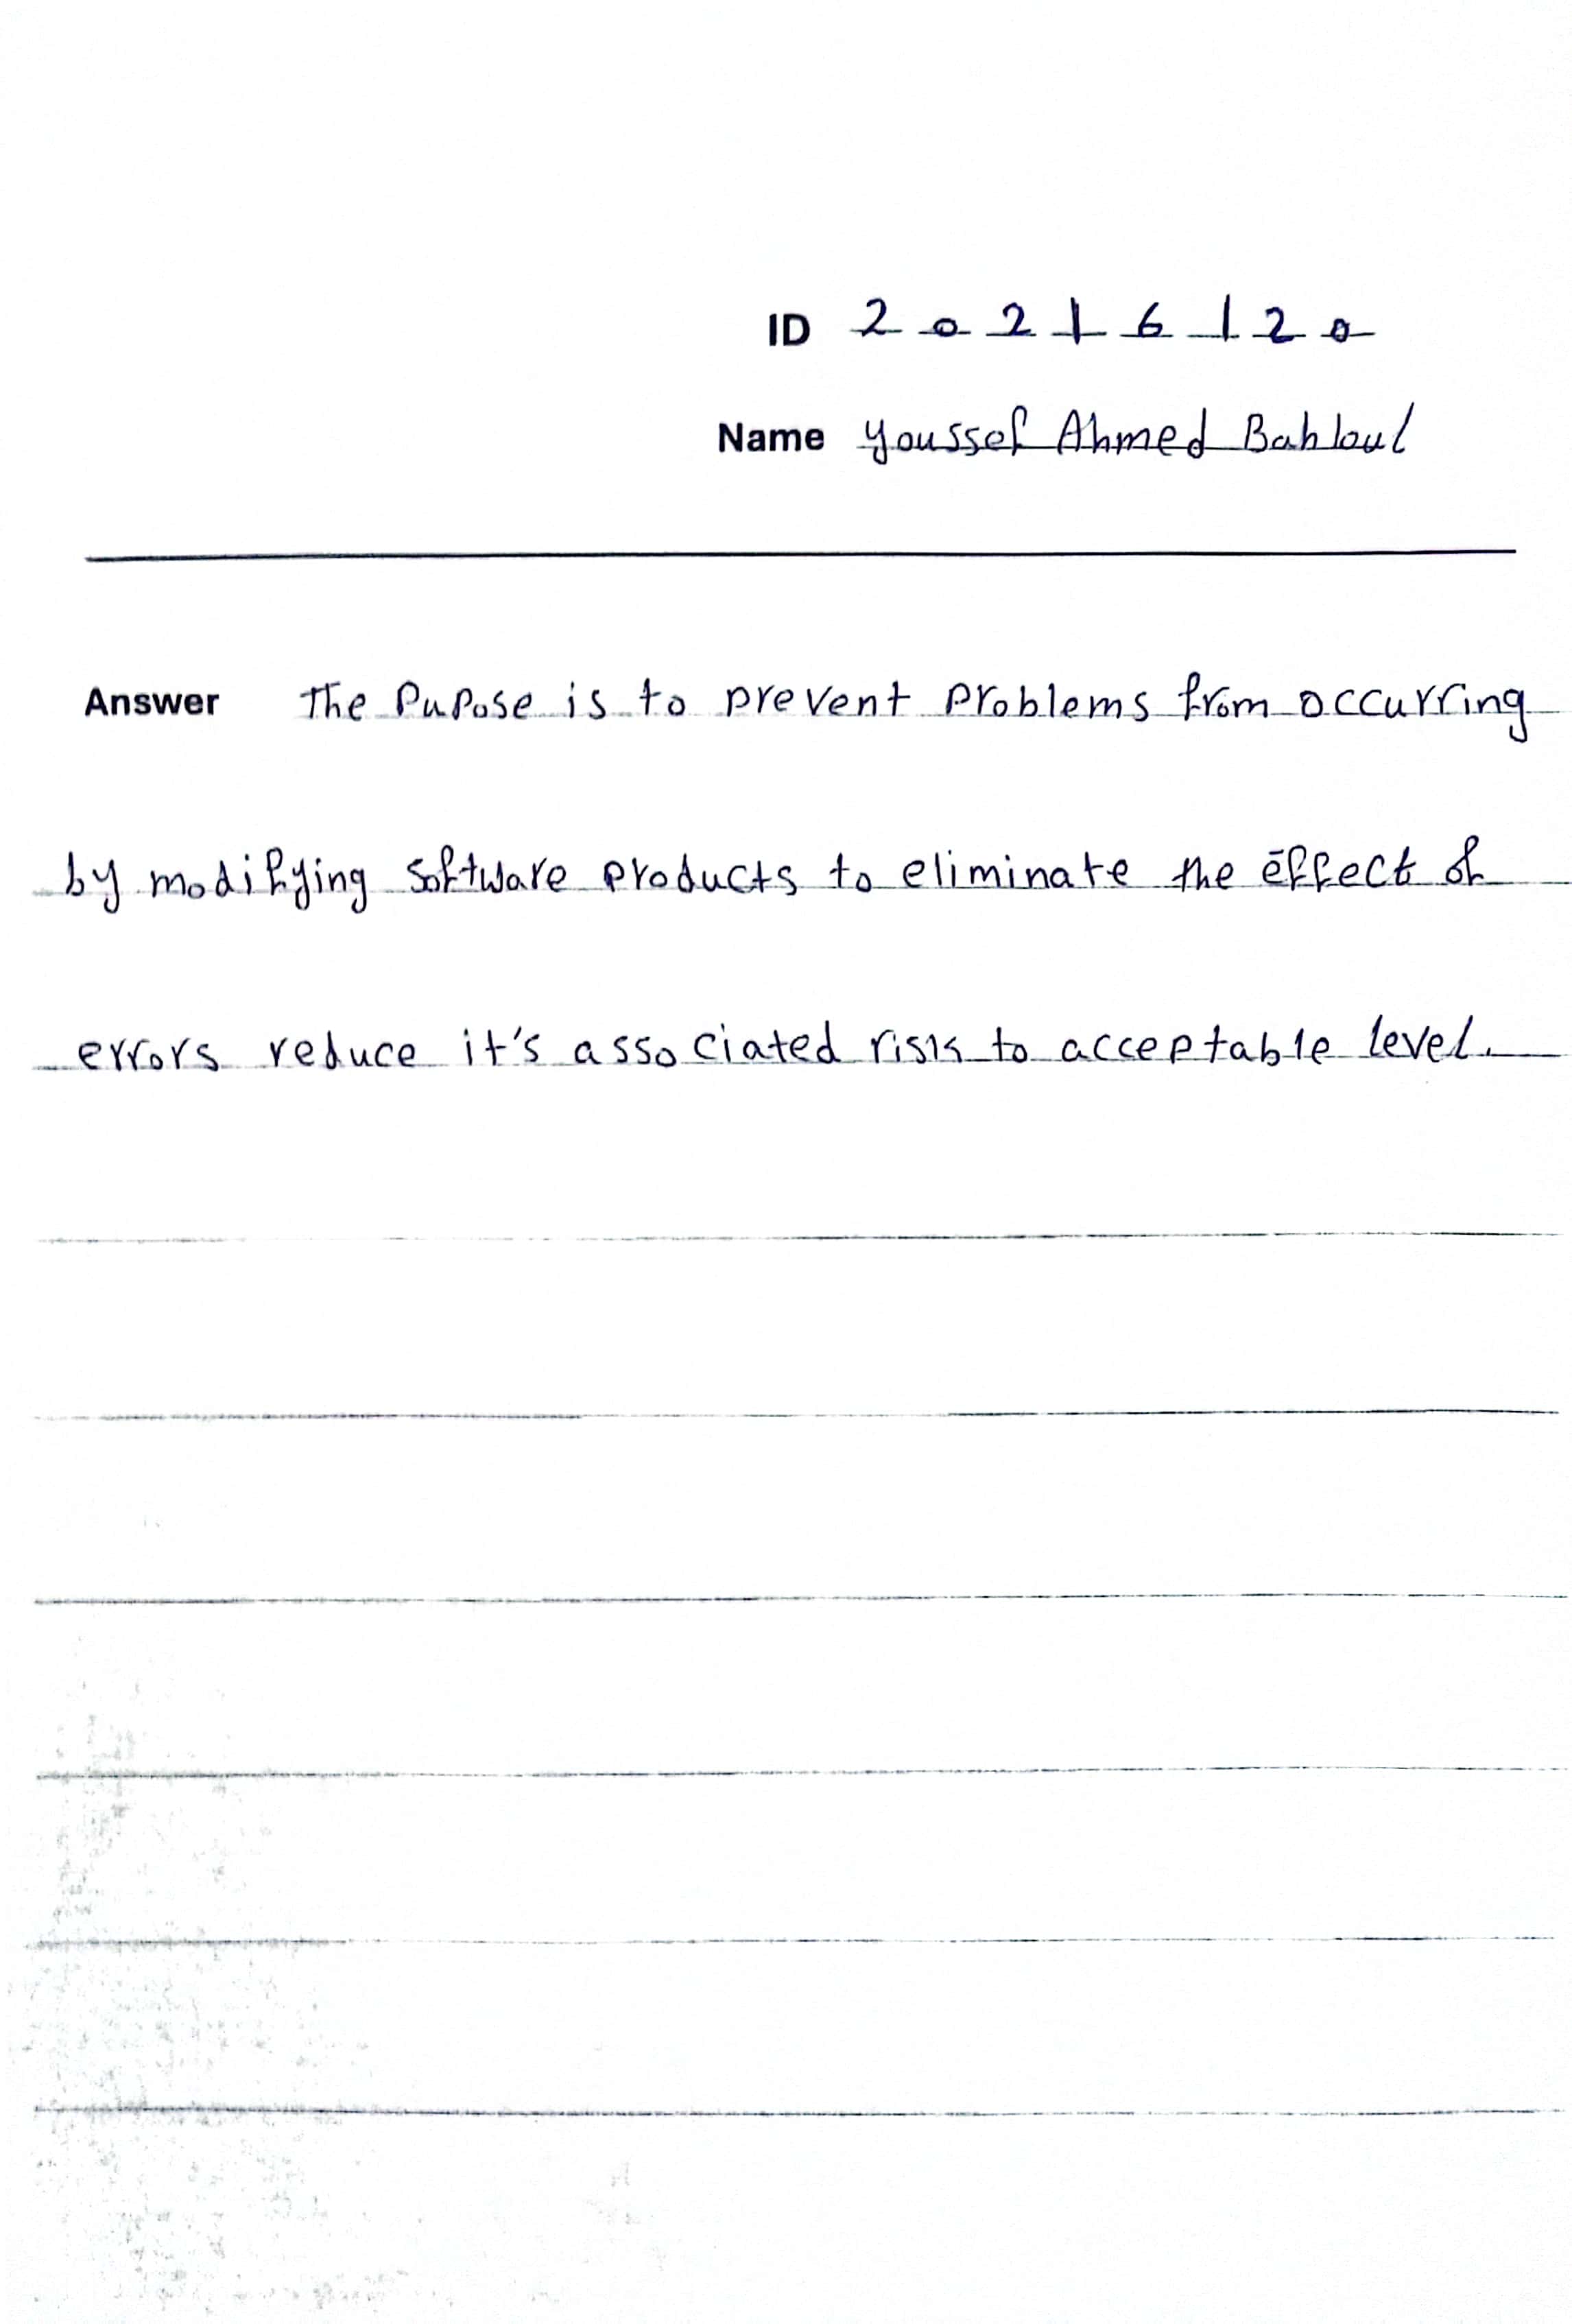 ID 20216120
Name Youssef Ahmed Bahloul
Answer The Pupose is to prevent problems from occurring
by modifying software products to eliminate the effect of
errors reduce it's associated risk to acceptable level.